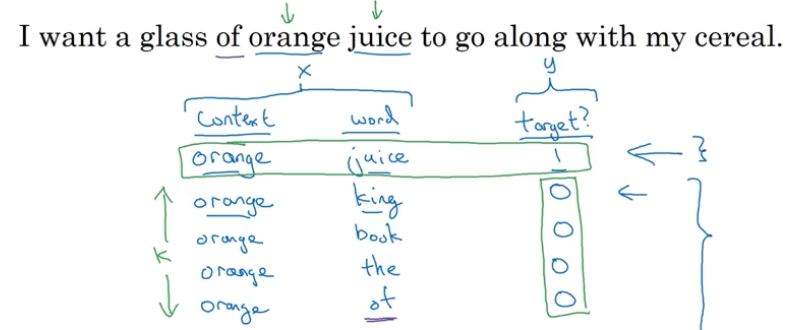 I want a glass of orange juice to go along with my cereal.
x y
context word target?
orange juice 1
orange king 0
orange book 0
k
orange the 0
orange of 0